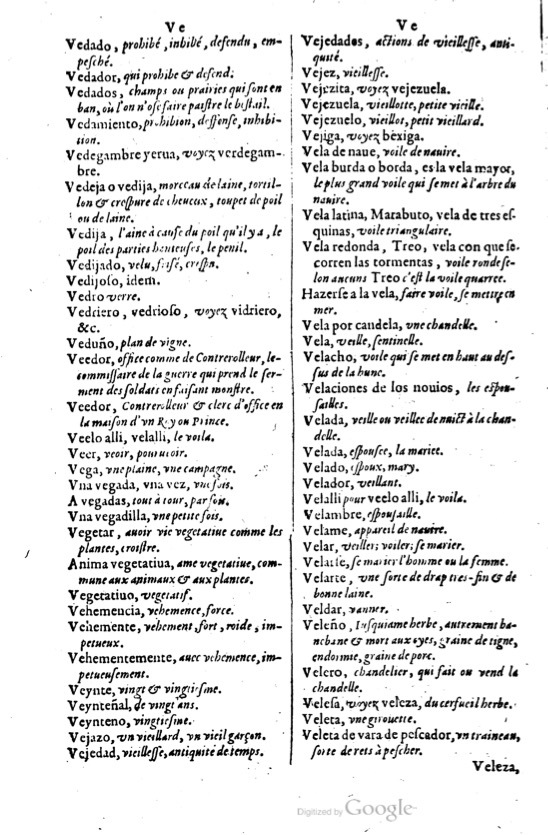 Ve
Vedado, prohibé, inhibé, defendu, em-
pesché.
Vedador, qui prohibe & defend.
Vedados, champs ou prairies qui sont en
ban, où l'on n'ose faire paistre le bestail.
Vedamiento, prohibion, deffense, inhibi-
tion.
Vedegambre yerua, voyez verdegam-
bre.
Vedeja o vedija, morceau de laine, tortil-
lon & crespure de cheueux, toupet de poil
ou de laine.
Vedija, l'aine à cause du poil qu'il y a, le
poil des parties honteuses, le penil.
Vedijado, velu, frisé, crespu.
Vedijoso, idem.
Vedro verre.
Vedriero, vedrioso, voyez vidriero,
&c.
Veduño, plan de vigne.
Veedor, office comme de Contrerolleur, le
commissaire de la guerre qui prend le ser-
ment des soldats en faisant monstre.
Veedor, Contrerolleur & clerc d'office en
la maison d'vn Roy ou Prince.
Veelo alli, velalli, le voila.
Veer, veoir, pouruoir.
Vega, vne plaine, vne campagne.
Vna vegada, vna vez, vne fois.
A vegadas, tout à tour, par fois.
Vna vegadilla, vne petite fois.
Vegetar, auoir vie vegetatiue comme les
plantes, croistre.
Anima vegetatiua, ame vegetatiue, com-
mune aux animaux & aux plantes.
Vegetatiuo, vegetatif.
Vehemencia, vehemence, force.
Vehemente, vehement, fort, roide, im-
petueux.
Vehementemente, auec vehemence, im-
petueusement.
Veynte, vingt & vingtiesme.
Veynteñal, de vingt ans.
Veynteno, vingtiesme.
Vejazo, vn vieillard, vn vieil garçon.
Vejedad, vieillesse, antiquité de temps.
Ve
Vejedados, actions de vieillesse, anti-
quité.
Vejez, vieillesse.
Vejezita, voyez vejezuela.
Vejezuela, vieillotte, petite vieille.
Vejezuelo, vieillot, petit vieillard.
Vejiga, voyez bexiga.
Vela de naue, voile de nauire.
Vela burda o borda, es la vela mayor,
le plus grand voile qui se met à l'arbre du
nauire.
Vela latina, Marabuto, vela de tres es-
quinas, voile triangulaire.
Vela redonda, Treo, vela con que se
corren las tormentas, voile ronde se-
lon aucuns Treo c'est la voile quarree.
Hazerse a la vela, faire voile, se mettre en
mer.
Vela por candela, vne chandelle.
Vela, veille, sentinelle.
Velacho, voile qui se met en haut au des-
sus de la hune.
Velaciones de los nouios, les espou-
sailles.
Velada, veille ou veillee de nuict à la chan-
delle.
Velada, espousee, la mariee.
Velado, espoux, mary.
Velador, veillant.
Velalli pour veelo alli, le voila.
Velambre, espousaille.
Velame, appareil de nauire.
Velar, veiller; voiler; se marier.
Velarse, se marier l'homme ou la femme.
Velarte, vne sorte de drap tres-fin & de
bonne laine.
Veldar, vanner.
Veleño, Iusquiame herbe, autrement ha-
nebane & mort aux oyes, graine de tigne,
endormie, graine de porc.
Velero, chandelier, qui fait ou vend la
chandelle.
Velesa, voyez veleza, du cerfueil herbe.
Veleta, vne girouette.
Veleta de vara de pescador, vn traineau,
sorte de rets à pescher.
Veleza,
Digitized by Google